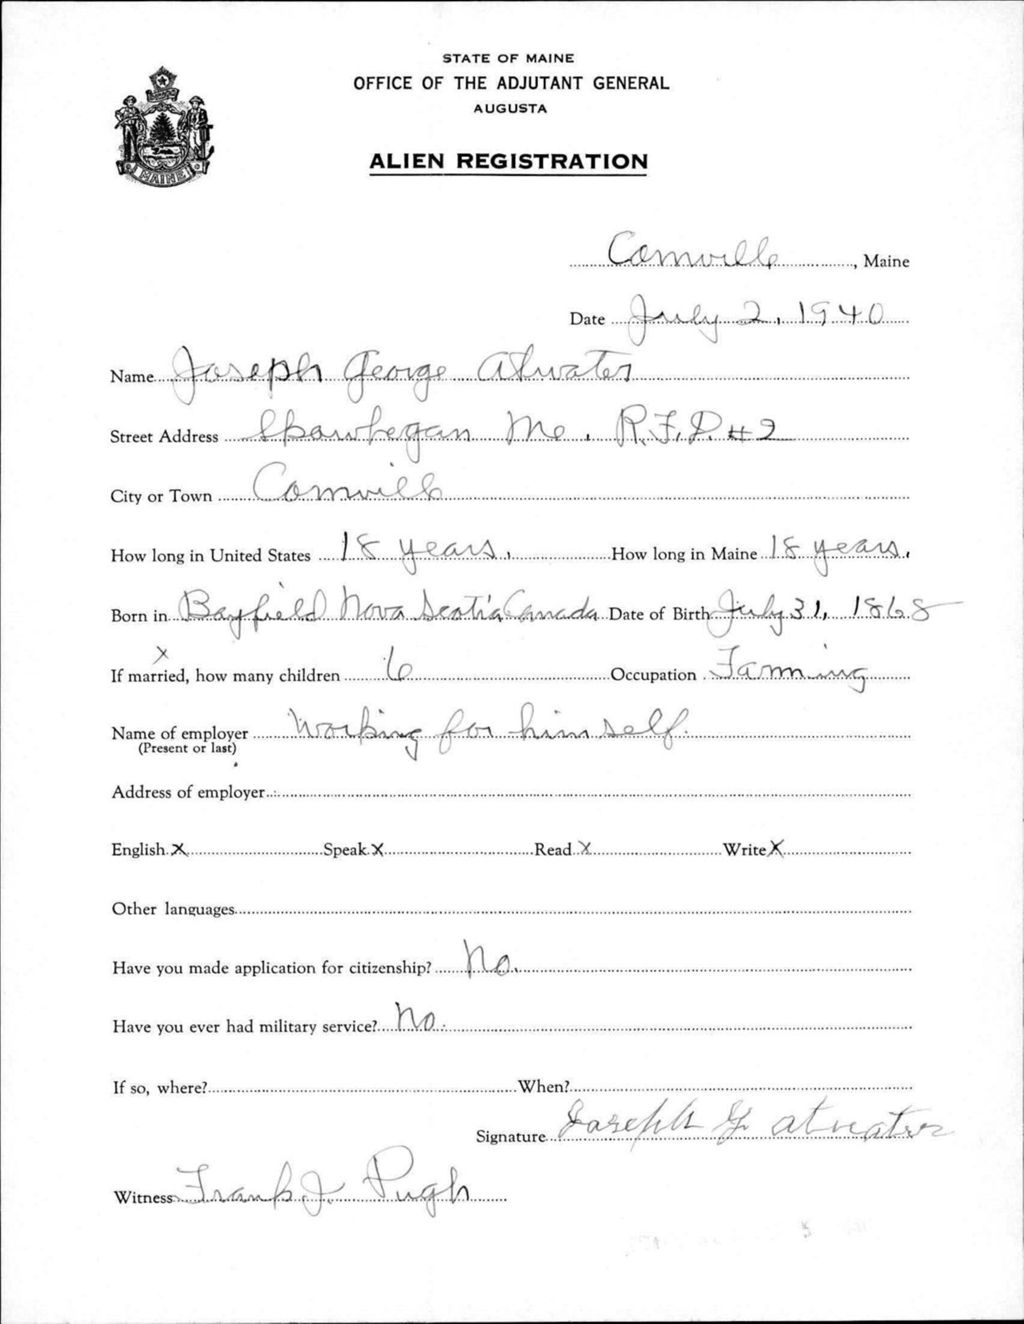 STATE OF MAINE
OFFICE OF THE ADJUTANT GENERAL
AUGUSTA
ALIEN REGISTRATION
MAINE
Cornville, Maine
Date July 2, 1940
Name Joseph George Atwater
Street Address Skowhegan Me. R.F.D. #2
City or Town Cornville
How long in United States 18 years, How long in Maine 18 years,
Born in Bayfield Nova Scotia Canada Date of Birth July 31, 1868
x
If married, how many children 6 Occupation Farming
Name of employer Working for himself.
(Present or last)
Address of employer
English X Speak X Read X Write X
Other languages
Have you made application for citizenship? No.
Have you ever had military service? No.
If so, where? When?
Signature Joseph G Atwater
Witness Frank J. Pugh